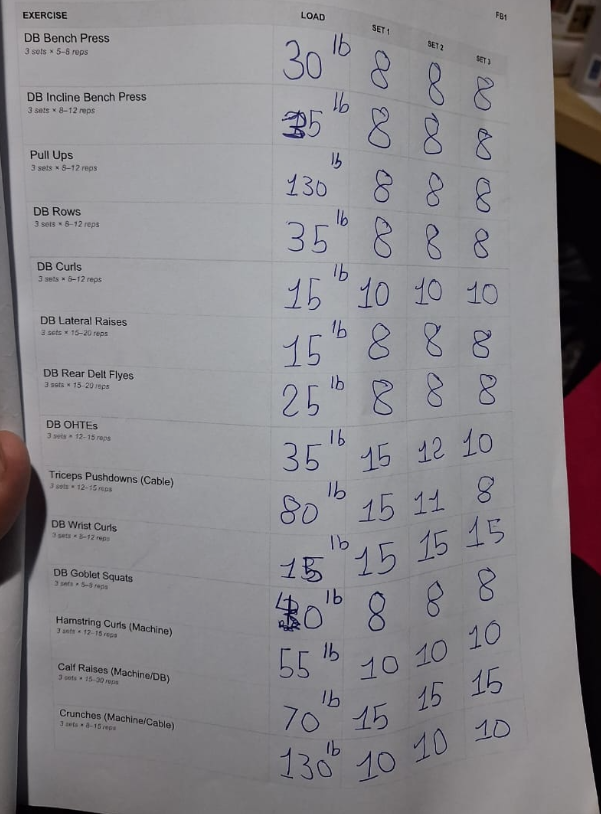 EXERCISE LOAD SET 1 SET 2 SET 3 FB1
DB Bench Press 30 lb 8 8 8
3 sets × 5–8 reps
DB Incline Bench Press lb 8 8 8
3 sets × 8–12 reps
Pull Ups 130 lb 8 8 8
3 sets × 8–12 reps
DB Rows 35 lb 8 8 8
3 sets × 8–12 reps
DB Curls 15 lb 10 10 10
3 sets × 8–12 reps
DB Lateral Raises 15 lb 8 8 8
3 sets × 15–20 reps
DB Rear Delt Flyes 25 lb 8 8 8
3 sets × 15-20 reps
DB OHTEs 35 lb 15 12 10
3 sets × 12-15 reps
Triceps Pushdowns (Cable) 80 lb 15 11 8
3 sets × 12-15 reps
DB Wrist Curls 15 lb 15 15 15
3 sets × 8-12 reps
DB Goblet Squats lb 8 8 8
3 sets × 5-8 reps
Hamstring Curls (Machine) 55 lb 10 10 10
3 sets × 12-15 reps
Calf Raises (Machine/DB) 70 lb 15 15 15
3 sets × 15-30 reps
Crunches (Machine/Cable) 130 lb 10 10 10
3 sets × 8-15 reps